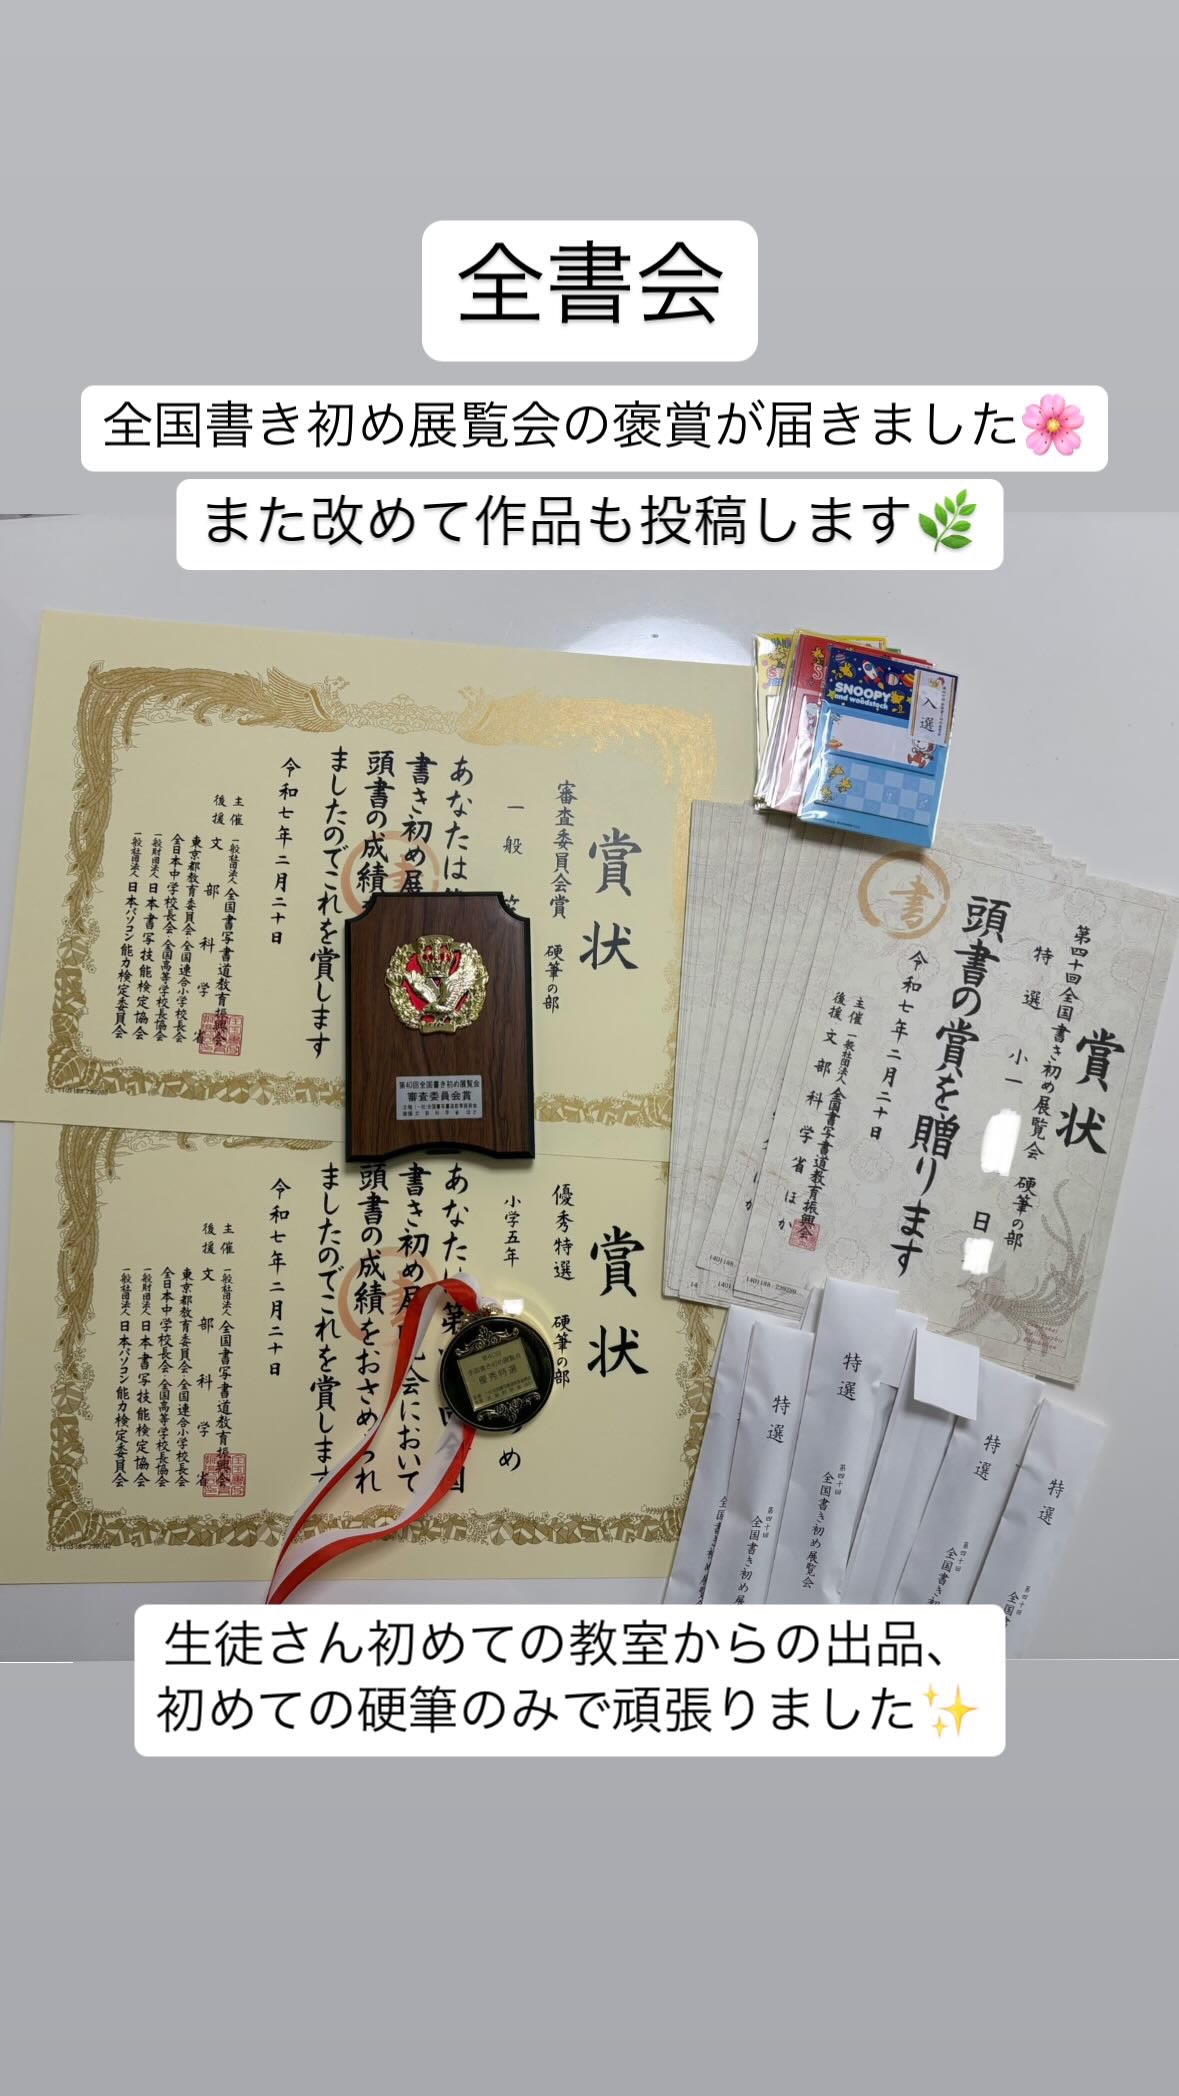 全書会
全国書き初め展覧会の褒賞が届きました🌸
また改めて作品も投稿します🌿
賞状
審査委員会賞 硬筆の部
一般
あなたは
書き初め展
頭書の成績
ましたのでこれを賞します
令和七年二月二十日
主催 一般社団法人 全国書写書道教育振興会
後援 文部科学省
東京都教育委員会・全国連合小学校長会
全日本中学校長会・全国高等学校長協会
一般財団法人 日本書写技能検定協会
一般社団法人 日本パソコン能力検定委員会
第40回全国書き初め展覧会
審査委員会賞
SNOOPY
and woodstock
入選
賞状
第四十回全国書き初め展覧会 硬筆の部
特選 小一 日
頭書の賞を贈ります
令和七年二月二十日
主催 一般社団法人 全国書写書道教育振興会
後援 文部科学省 ほか
賞状
優秀特選 硬筆の部
小学五年 め
あなたは第
書き初め展 会において
頭書の成績をおさめられ
ましたのでこれを賞します
令和七年二月二十日
主催 一般社団法人 全国書写書道教育振興会
後援 文部科学省
東京都教育委員会・全国連合小学校長会
全日本中学校長会・全国高等学校長協会
一般財団法人 日本書写技能検定協会
一般社団法人 日本パソコン能力検定委員会
全国書き初め展覧会
優秀特選
特選
第四十回
全国書き初め展覧会
特選
第四十回
全国書き初め展
特選
第四十回
全国書き初
特選
第四十回
全国書
生徒さん初めての教室からの出品、
初めての硬筆のみで頑張りました✨